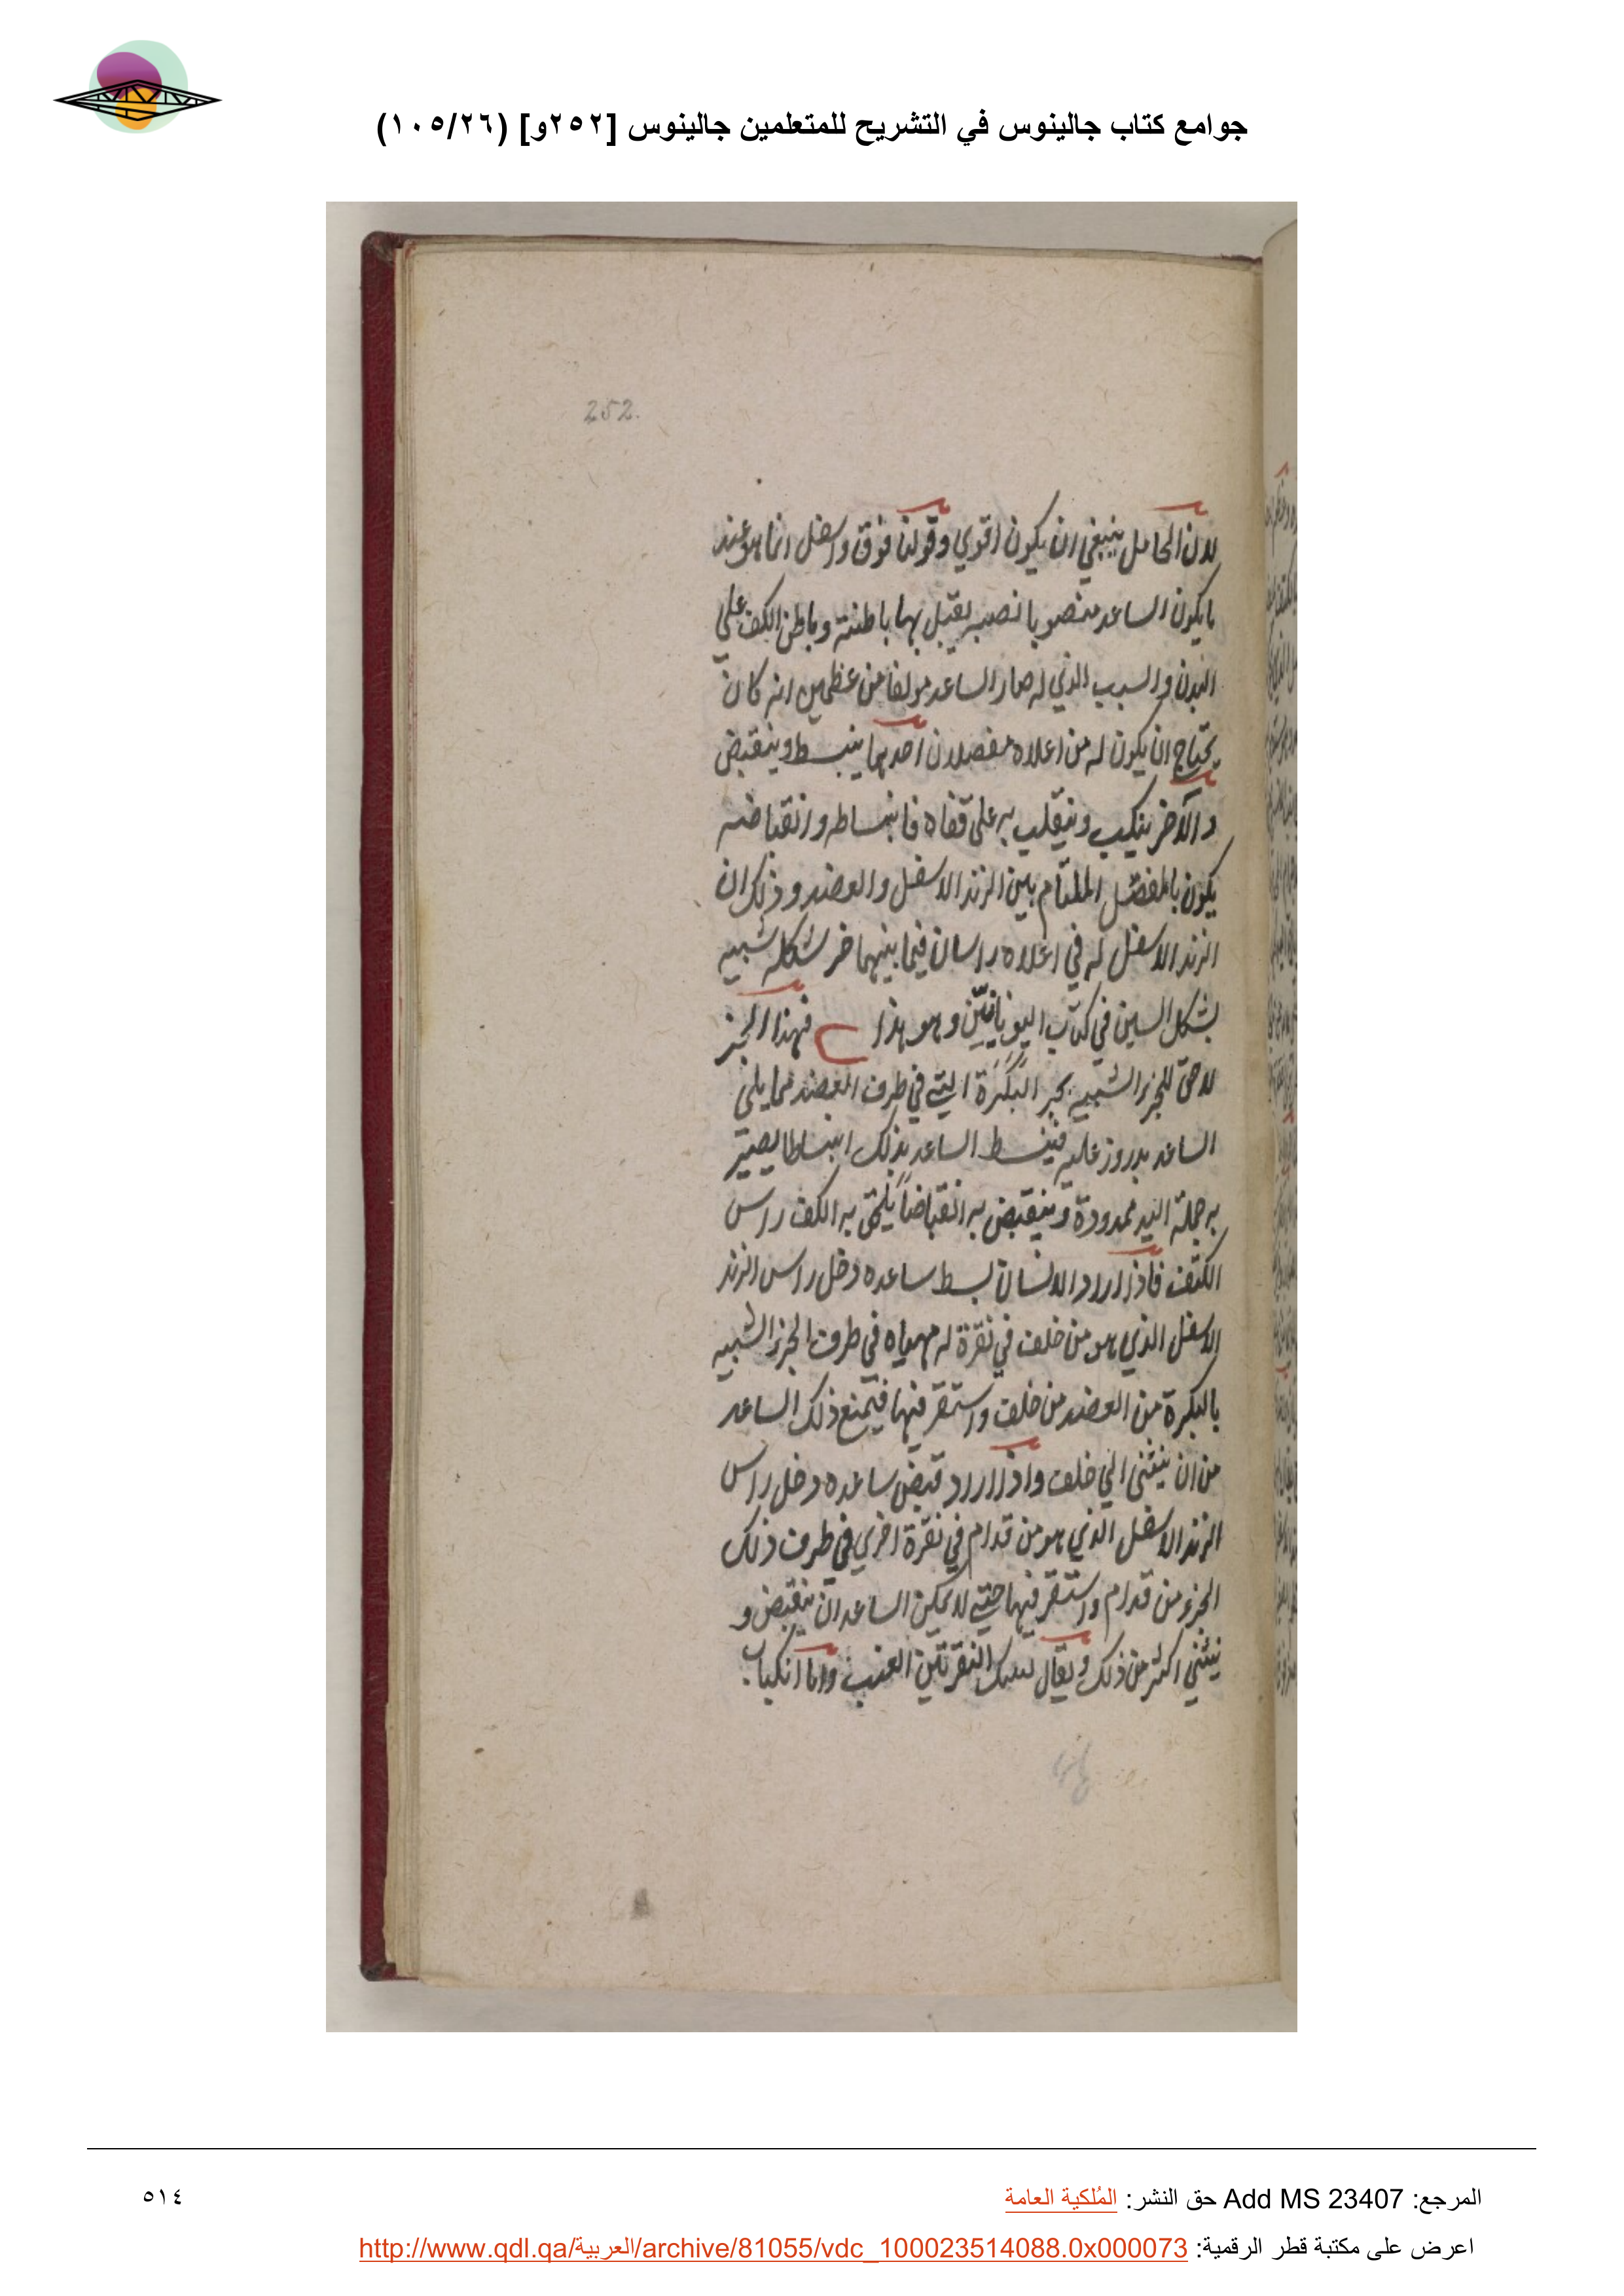 جوامع كتاب جالينوس في التشريح للمتعلمين جالينوس [٢٥٢و] (١٠٥/٢٦)
252.
لان الحامل ينبغي ان يكون اقوي وقولنا فوق واسفل انما هو عند
ما يكون الساعد منصوبا نصبه يقبل بها باطنته وباطن الكف علي
البدن والسبب الذي له صار الساعد مولفا من عظمين انه كان
يحتاج ان يكون له من اعلاه مفصلان احدهما ينبسط وينقبض
والآخر ينكب وينقلب به على قفاه فانبساطه وانقباضه
يكون بالمفصل الملتام بين الزند الاسفل والعضد وذلك ان
الزند الاسفل له في اعلاه راسان فيما بينهما حز شكله شبيه
بشكل السين في كتاب اليونانيين وهو هذا فهذا الحز
لاحق للجز الشبيه بحز البكرة التي في طرف العضد مما يلي
الساعد يدور عليه فينبسط الساعد بذلك انبساطا يصير
به جملة اليد ممدودة وينقبض به انقباضاً يلحق به الكف راس
الكتف فاذا اراد الانسان بسط ساعده دخل راس الزند
الاسفل الذي هو من خلف في نقرة له مهياه في طرف الجز الشبيه
بالبكرة من العضد من خلف واستقر فيها فيمنع ذلك الساعد
من ان ينثني الي خلف واذا اراد قبض ساعده دخل راس
الزند الاسفل الذي هو من قدام في نقرة اخري في طرف ذلك
الجز من قدام واستقر فيها حتي لا يمكن الساعد ان ينقبض و
ينثني اكثر من ذلك ويقال لتلك النقرتين العتب واما انكباب
المرجع: Add MS 23407 حق النشر: المُلكية العامة
٥١٤
اعرض على مكتبة قطر الرقمية: http://www.qdl.qa/العربية/archive/81055/vdc_100023514088.0x000073